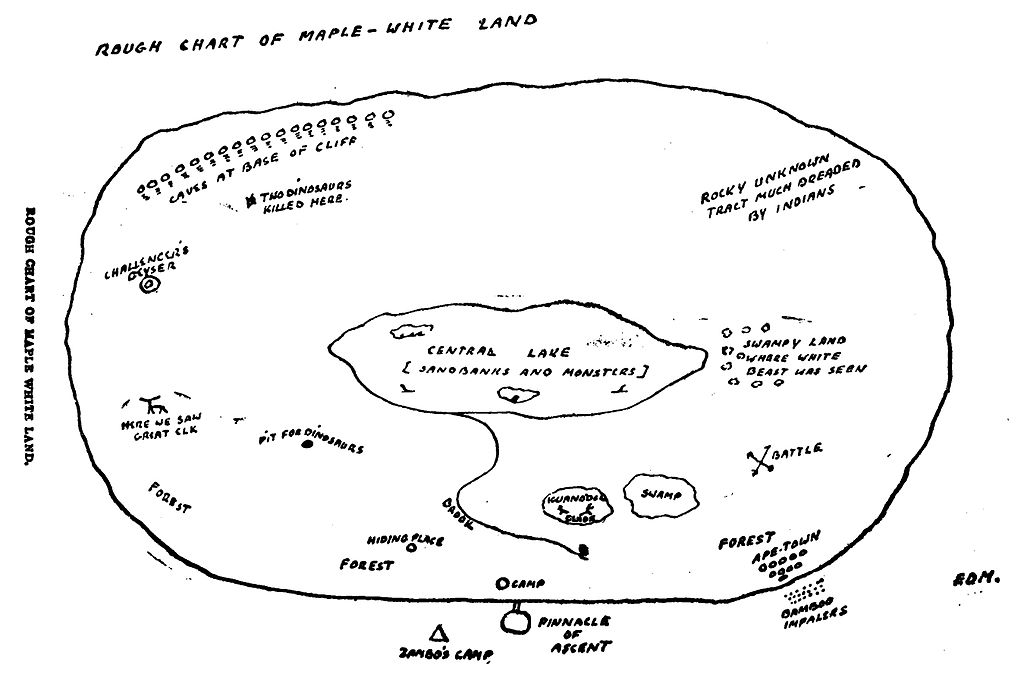 ROUGH CHART OF MAPLE-WHITE LAND
CAVES AT BASE OF CLIFF
TWO DINOSAURS
KILLED HERE.
ROCKY UNKNOWN
TRACT MUCH DREADED
BY INDIANS
CHALLENGER'S
GEYSER
ROUGH CHART OF MAPLE WHITE LAND.
CENTRAL LAKE
[SANDBANKS AND MONSTERS]
SWAMPY LAND
WHERE WHITE
BEAST WAS SEEN
HERE WE SAW
GREAT ELK
PIT FOR DINOSAURS
BATTLE
FOREST
BROOK
SWAMP
HIDING PLACE
FOREST
FOREST
APE-TOWN
CAMP
BAMBOO
IMPALERS
EDM.
PINNACLE
OF
ASCENT
ZAMBO'S CAMP